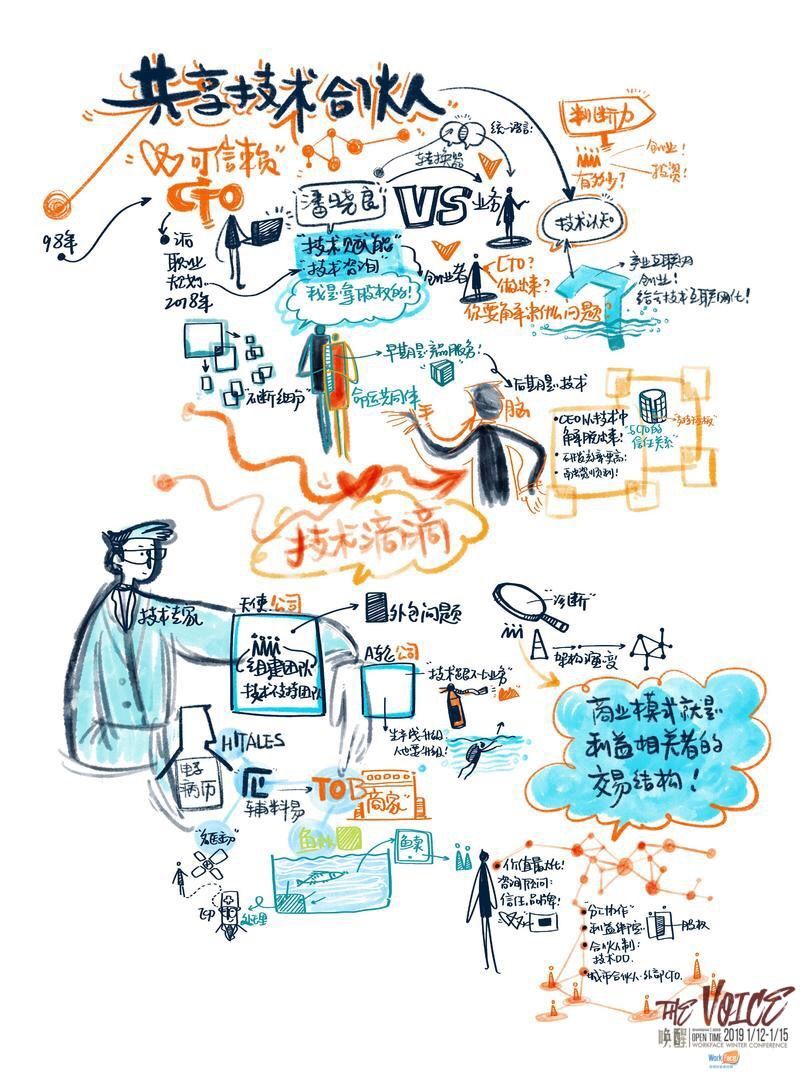 共享技术合伙人
"可信赖"
CTO
98年
派
职业
2018年
潘晓良
"技术赋能"
"技术咨询"
我是拿股权的!
转换器
统一语言!
VS
业务
创业者
CTO?
做出来?
你要解决什么问题?
判断力
创业!
投资!
有多少?
技术认知
产业互联网
创业!
给予技术互联网化!
"不断细分"
早期是产品服务!
命运共同体
后期是技术
手
脑
CEO从技术中
解脱出来!
研发效率更高!
"与CTO的
信任关系"
技术滴滴
技术专家
天使公司
组建团队
技术支持团队
外包问题
A轮公司
"技术跟不上业务"
"诊断"
架构演变
商业模式就是
利益相关者的
交易结构!
HITALES
电子
病历
辅料易
TOB
"商家"
鱼卖
处理
价值最大化!
咨询顾问:
信任,品牌!
"分工协作"
利益绑定
股权
合伙人制:
技术DD.
城市合伙人·外部CTO.
THE VOICE
唤醒
OPEN TIME 2019 1/12-1/15
WORKFACE WINTER CONFERENCE
WorkFace